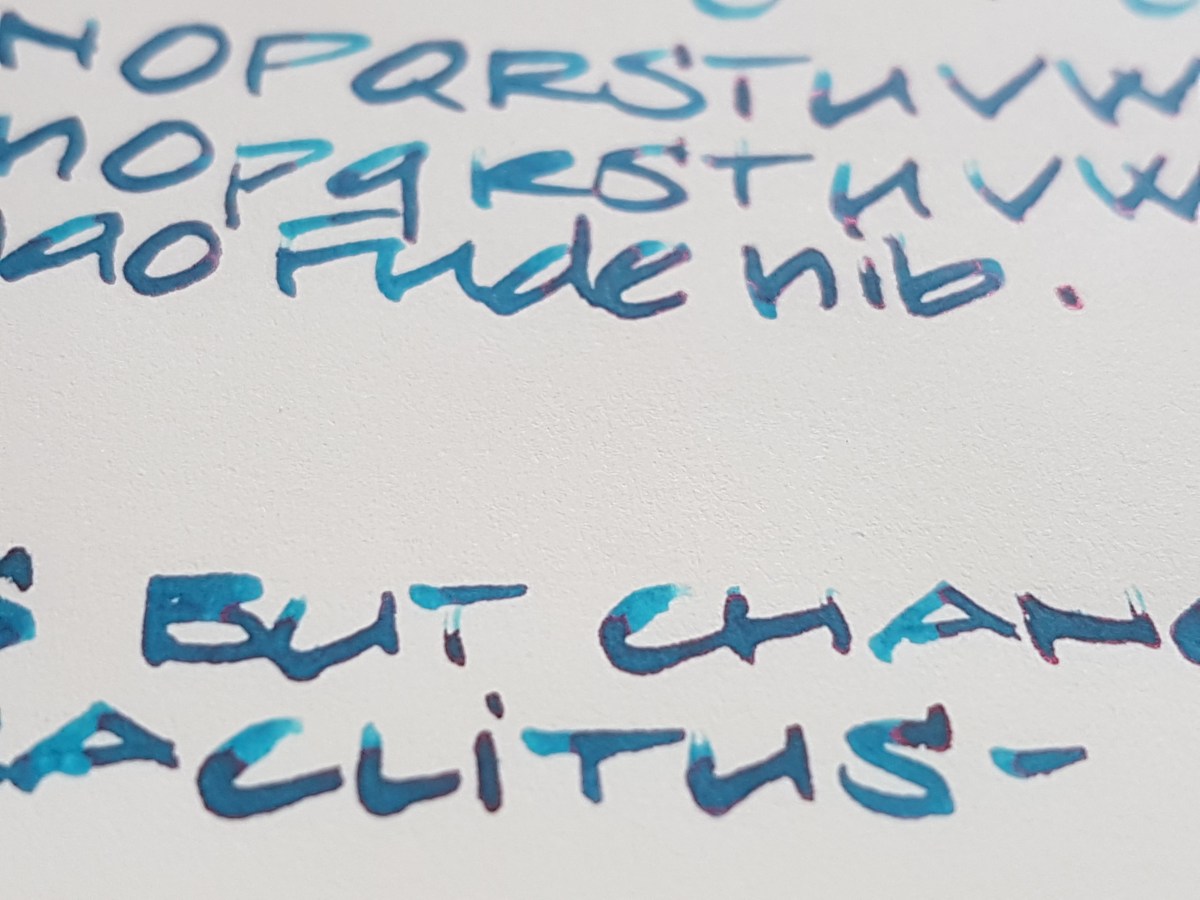 NOPQRSTUVW
NOPQRSTUVW
Fude nib.
S BUT CHANG
ACLiTUS-